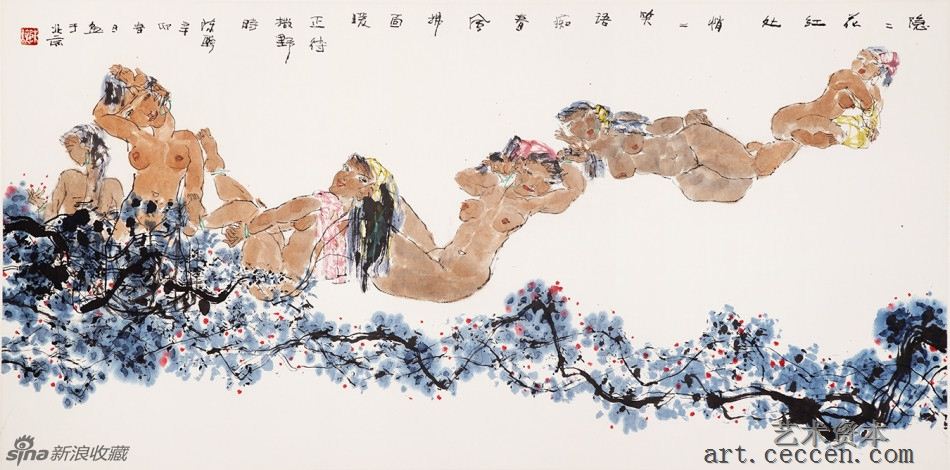 隐〻花红处悄〻笑语痴春风拂面暖正待撒野时陈醉辛卯春日画于北京
sina新浪收藏
艺术资本
art.ceccen.com